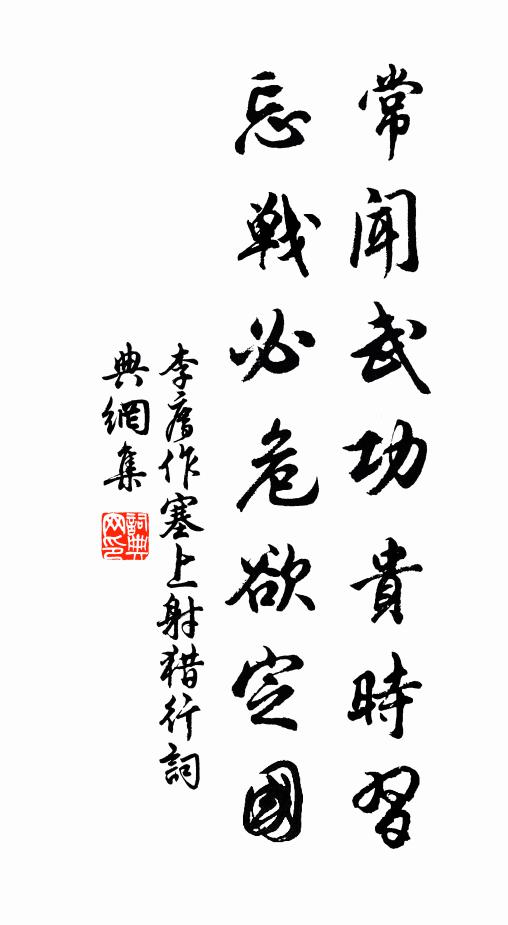 常聞武功貴時習
忘戰必危欲定國
李廌作塞上射猎行詞
典網集
詞典網印